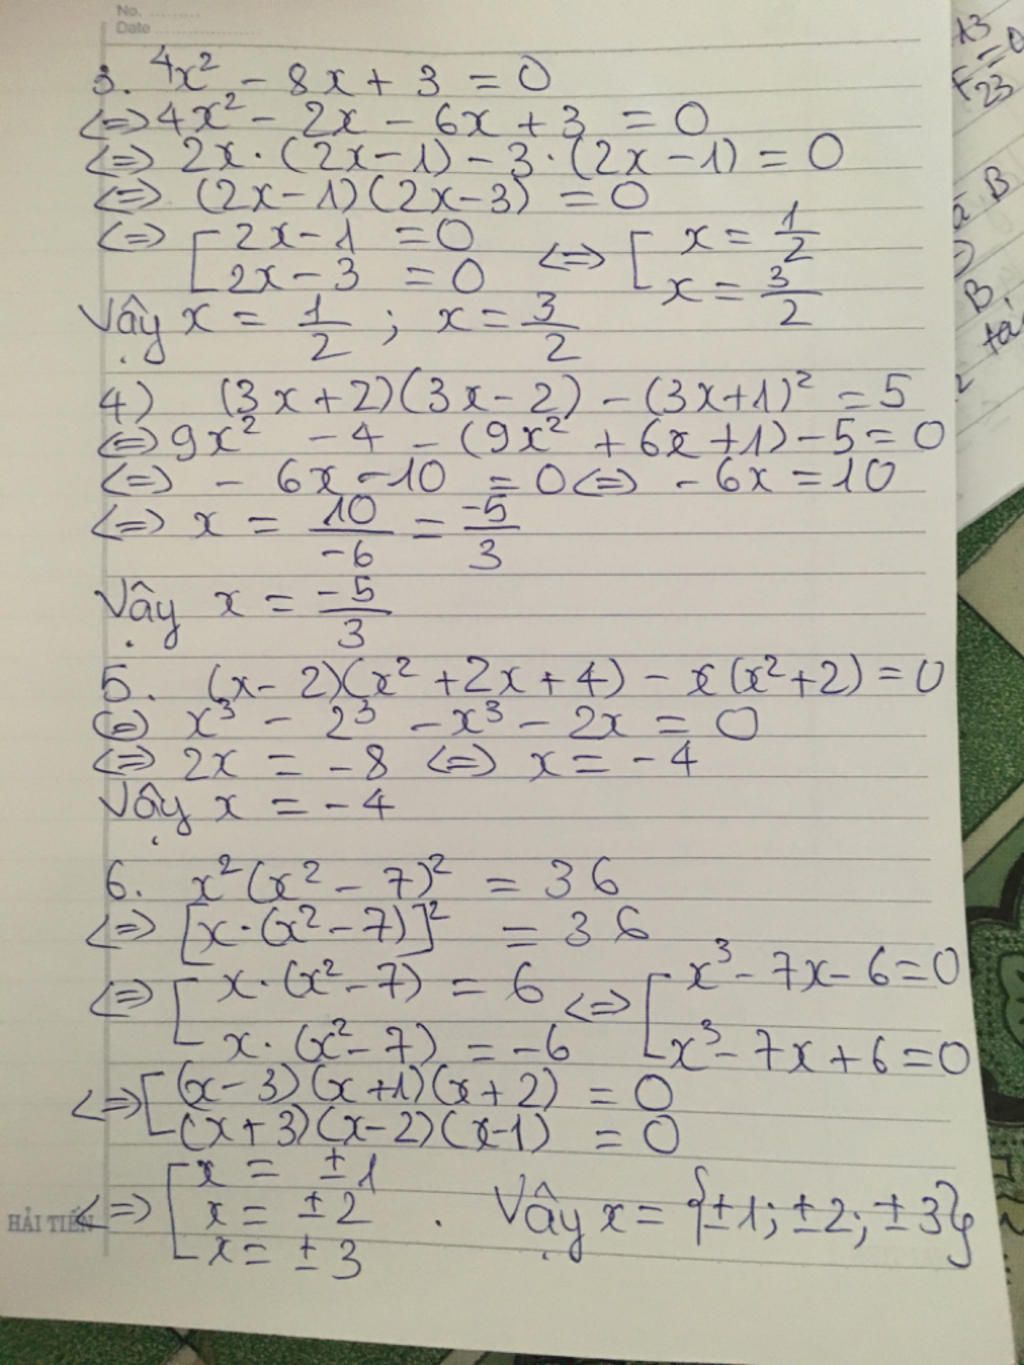 No. ..........
Date ....................
3. 4x² - 8x + 3 = 0
<=> 4x² - 2x - 6x + 3 = 0
<=> 2x · (2x - 1) - 3 · (2x - 1) = 0
<=> (2x - 1)(2x - 3) = 0
<=> [ 2x - 1 = 0 <=> [ x = 1/2
2x - 3 = 0 x = 3/2
Vậy x = 1/2 ; x = 3/2
4) (3x + 2)(3x - 2) - (3x + 1)² = 5
<=> 9x² - 4 - (9x² + 6x + 1) - 5 = 0
<=> - 6x - 10 = 0 <=> - 6x = 10
<=> x = 10/-6 = -5/3
Vậy x = -5/3
5. (x - 2)(x² + 2x + 4) - x(x² + 2) = 0
<=> x³ - 2³ - x³ - 2x = 0
<=> 2x = -8 <=> x = -4
Vậy x = -4
6. x²(x² - 7)² = 36
<=> [x · (x² - 7)]² = 36
<=> [ x · (x² - 7) = 6 <=> [ x³ - 7x - 6 = 0
x · (x² - 7) = -6 x³ - 7x + 6 = 0
<=> [ (x - 3)(x + 1)(x + 2) = 0
(x + 3)(x - 2)(x - 1) = 0
<=> [ x = ±1
x = ±2 . Vậy x = {±1; ±2; ±3}
x = ±3
HẢI TIẾN